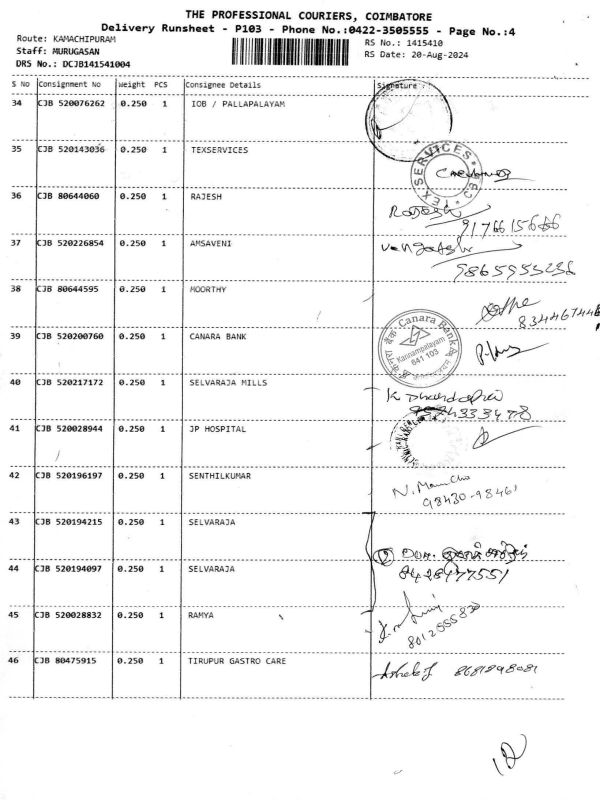 THE PROFESSIONAL COURIERS, COIMBATORE
Delivery Runsheet - P103 - Phone No.:0422-3505555 - Page No.:4
Route: KAMACHIPURAM
Staff: MURUGASAN
DRS No.: DCJB141541004
RS No.: 1415410
RS Date: 20-Aug-2024
S No Consignment No Weight PCS Consignee Details Signature
34 CJB 520076262 0.250 1 IOB / PALLAPALAYAM
35 CJB 520143036 0.250 1 TEXSERVICES
TEX SERVICES CBE
36 CJB 80644060 0.250 1 RAJESH Rajesh
37 CJB 520226854 0.250 1 AMSAVENI
9865953236
38 CJB 80644595 0.250 1 MOORTHY
39 CJB 520200760 0.250 1 CANARA BANK
Canara Bank
Kannampalayam
641 103
40 CJB 520217172 0.250 1 SELVARAJA MILLS
41 CJB 520028944 0.250 1 JP HOSPITAL
42 CJB 520196197 0.250 1 SENTHILKUMAR
98430-98461
43 CJB 520194215 0.250 1 SELVARAJA
44 CJB 520194097 0.250 1 SELVARAJA
8428477551
45 CJB 520028832 0.250 1 RAMYA
8012555830
46 CJB 80475915 0.250 1 TIRUPUR GASTRO CARE